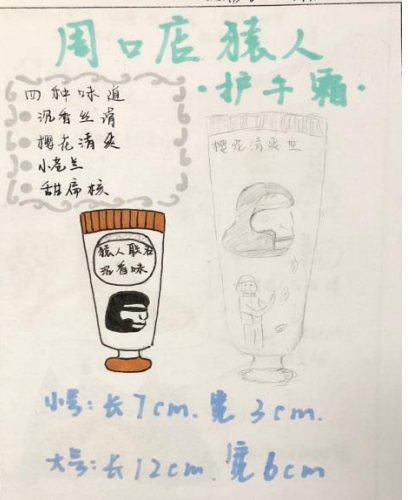 周口店猿人
·护手霜·
四种味道
沉香丝滑
樱花清爽
小苍兰
甜扁核
樱花清爽型
猿人联名
沉香味
小号:长7cm.宽3cm.
大号:长12cm.宽6cm